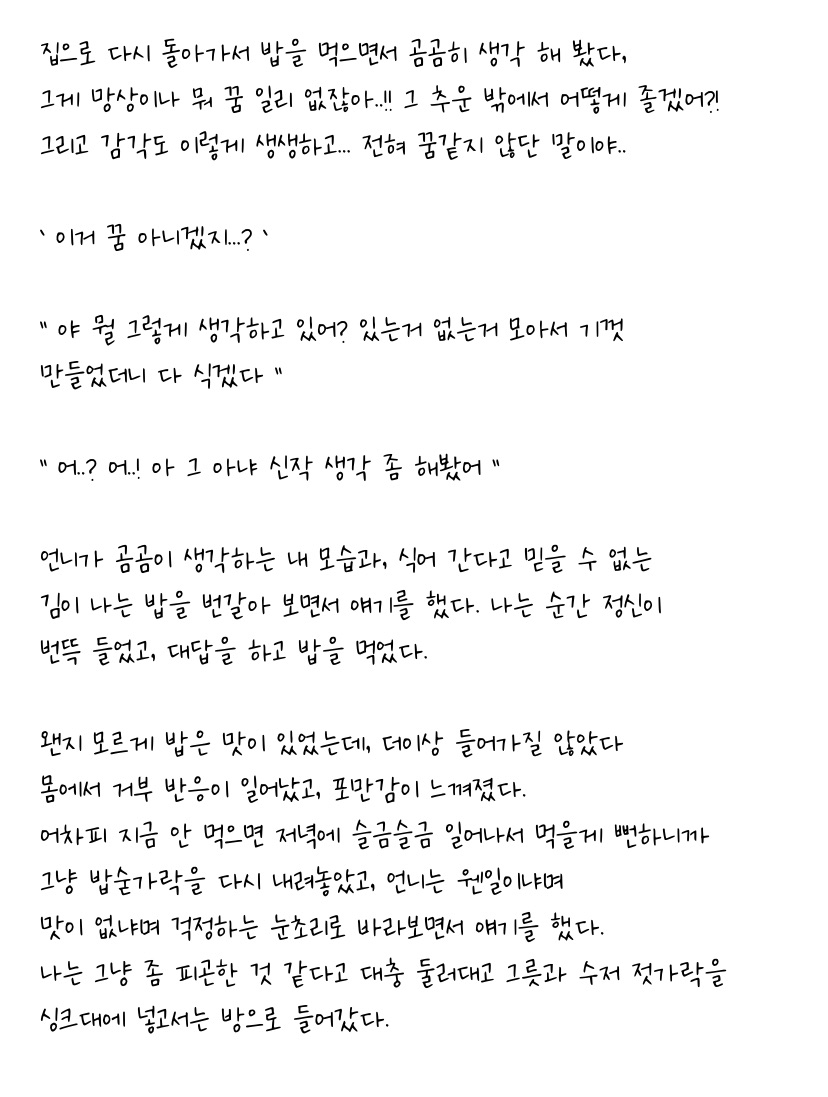 집으로 다시 돌아가서 밥을 먹으면서 곰곰히 생각 해 봤다,
그게 망상이나 뭐 꿈 일리 없잖아..!! 그 추운 밖에서 어떻게 졸겠어?!
그리고 감각도 이렇게 생생하고... 전혀 꿈같지 않단 말이야..
` 이거 꿈 아니겠지...? `
" 야 뭘 그렇게 생각하고 있어? 있는거 없는거 모아서 기껏
만들었더니 다 식겠다 "
" 어..? 어..! 아 그 아냐 신작 생각 좀 해봤어 "
언니가 곰곰이 생각하는 내 모습과, 식어 간다고 믿을 수 없는
김이 나는 밥을 번갈아 보면서 얘기를 했다. 나는 순간 정신이
번뜩 들었고, 대답을 하고 밥을 먹었다.
왠지 모르게 밥은 맛이 있었는데, 더이상 들어가질 않았다
몸에서 거부 반응이 일어났고, 포만감이 느껴졌다.
어차피 지금 안 먹으면 저녁에 슬금슬금 일어나서 먹을게 뻔하니까
그냥 밥숟가락을 다시 내려놓았고, 언니는 웬일이냐며
맛이 없냐며 걱정하는 눈초리로 바라보면서 얘기를 했다.
나는 그냥 좀 피곤한 것 같다고 대충 둘러대고 그릇과 수저 젓가락을
싱크대에 넣고서는 방으로 들어갔다.